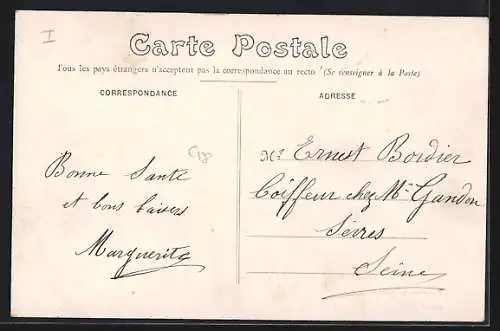 I
Carte Postale
Tous les pays étrangers n'acceptent pas la correspondance au recto (Se renseigner à la Poste)
CORRESPONDANCE
ADRESSE
C18
Bonne Santé
et bons baisers
Marguerite
Mr Ernest Bordier
Coiffeur chez Mr Gandon
Sèvres
Seine